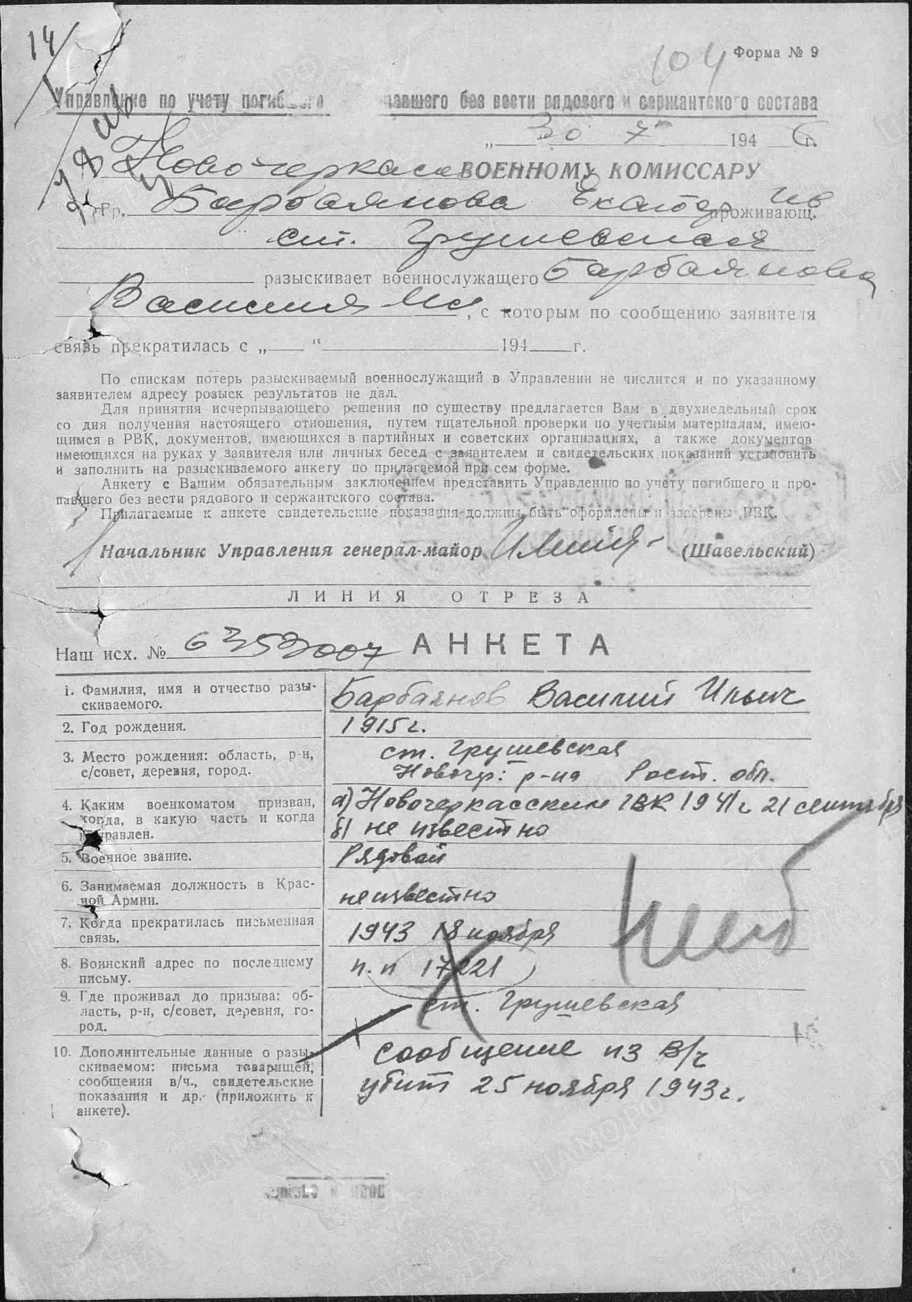 14
104 Форма № 9
Управление по учету погибшего и пропавшего без вести рядового и сержантского состава
„ 30 7 194 6 г.
Новочеркас ВОЕННОМУ КОМИССАРУ
Гр. Барбаянова Екатер Ив проживающ.
ст. Грушевская
разыскивает военнослужащего Барбаянова
Василия Ил , с которым по сообщению заявителя
связь прекратилась с „ “ 194 г.
По спискам потерь разыскиваемый военнослужащий в Управлении не числится и по указанному
заявителем адресу розыск результатов не дал.
Для принятия исчерпывающего решения по существу предлагается Вам в двухнедельный срок
со дня получения настоящего отношения, путем тщательной проверки по учетным материалам, имею-
щимся в РВК, документов, имеющихся в партийных и советских организациях, а также документов
имеющихся на руках у заявителя или личных бесед с заявителем и свидетельских показаний установить
и заполнить на разыскиваемого анкету по прилагаемой при сем форме.
Анкету с Вашим обязательным заключением представить Управлению по учету погибшего и про-
павшего без вести рядового и сержантского состава.
Прилагаемые к анкете свидетельские показания должны быть оформлены и заверены РВК.
Начальник Управления генерал-майор (Шавельский)
ЛИНИЯ ОТРЕЗА
Наш исх. № 6352007 АНКЕТА
1. Фамилия, имя и отчество разы-
скиваемого.
Барбаянов Василий Ильич
2. Год рождения.
1915 г.
3. Место рождения: область, р-н,
с/совет, деревня, город.
ст. Грушевская
Новочр: р-на Рост. обл.
4. Каким военкоматом призван,
когда, в какую часть и когда
направлен.
а) Новочеркасским ГВК 1941 г 21 сентября
б) не известно
5. Военное звание.
Рядовой
6. Занимаемая должность в Крас-
ной Армии.
неизвестно
7. Когда прекратилась письменная
связь.
1943 18 ноября
8. Воинский адрес по последнему
письму.
п. п 17221
9. Где проживал до призыва: об-
ласть, р-н, с/совет, деревня, го-
род.
ст. Грушевская
10. Дополнительные данные о разы-
скиваемом: письма товарищей,
сообщения в/ч., свидетельские
показания и др. (приложить к
анкете).
сообщение из В/ч
убит 25 ноября 1943 г.